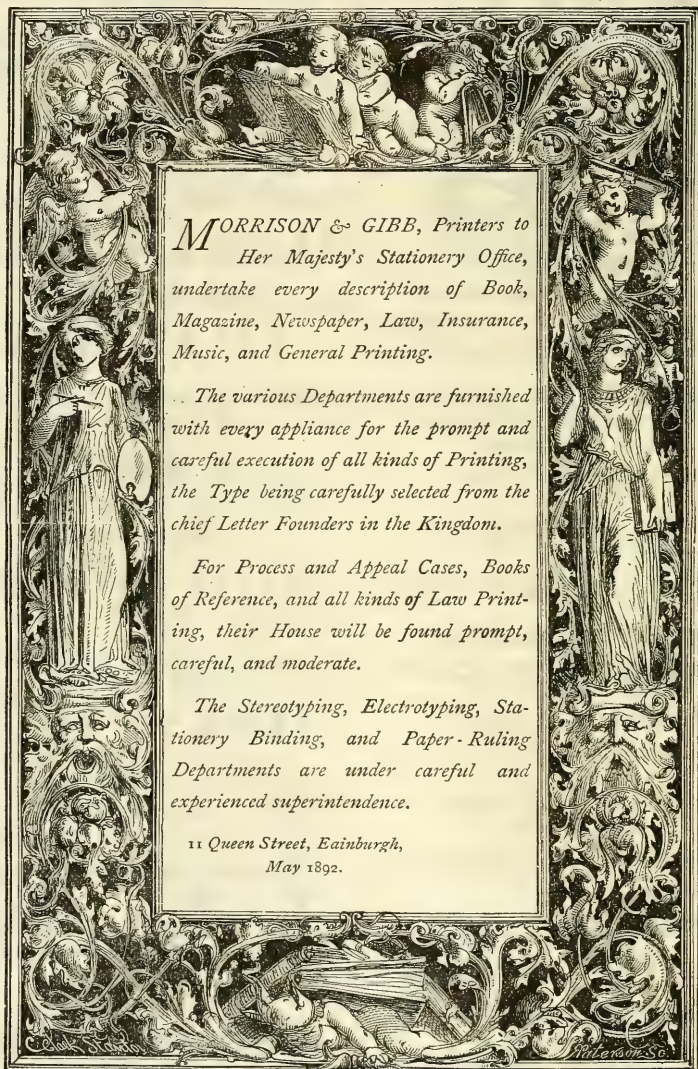 MORRISON & GIBB, Printers to
Her Majesty's Stationery Office,
undertake every description of Book,
Magazine, Newspaper, Law, Insurance,
Music, and General Printing.
The various Departments are furnished
with every appliance for the prompt and
careful execution of all kinds of Printing,
the Type being carefully selected from the
chief Letter Founders in the Kingdom.
For Process and Appeal Cases, Books
of Reference, and all kinds of Law Print-
ing, their House will be found prompt,
careful, and moderate.
The Stereotyping, Electrotyping, Sta-
tionery Binding, and Paper-Ruling
Departments are under careful and
experienced superintendence.
11 Queen Street, Eainburgh,
May 1892.
Paterson Sc.